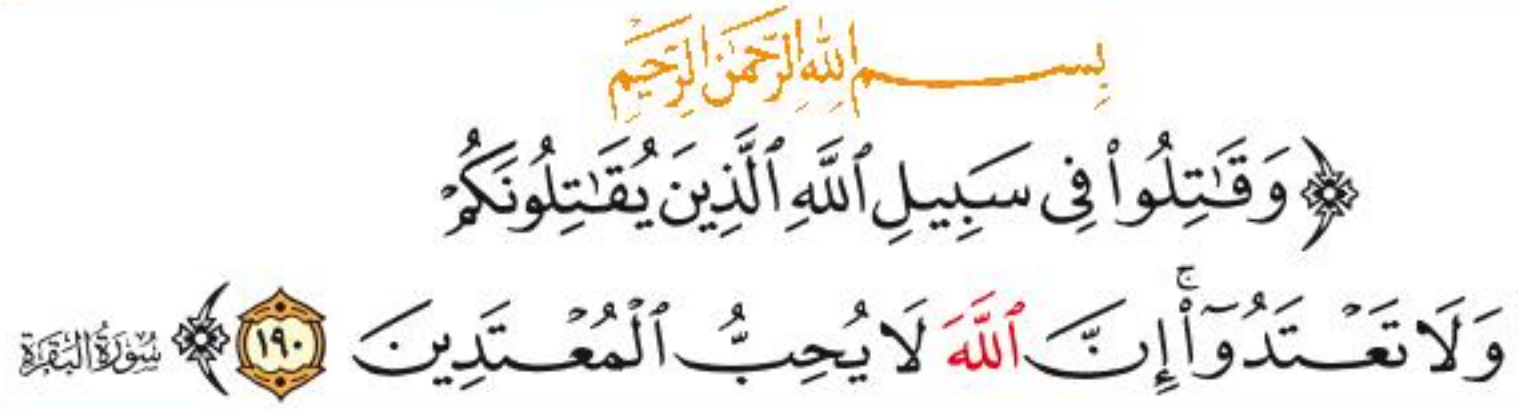 بِسْمِ اللهِ الرَّحْمٰنِ الرَّحِيْمِ
﴿ وَقَـٰتِلُوا۟ فِى سَبِيلِ ٱللَّهِ ٱلَّذِينَ يُقَـٰتِلُونَكُمْ
وَلَا تَعْتَدُوٓا۟ ۚ إِنَّ ٱللَّهَ لَا يُحِبُّ ٱلْمُعْتَدِينَ ١٩٠ ﴾ سُورَةُ البَقَرَةِ